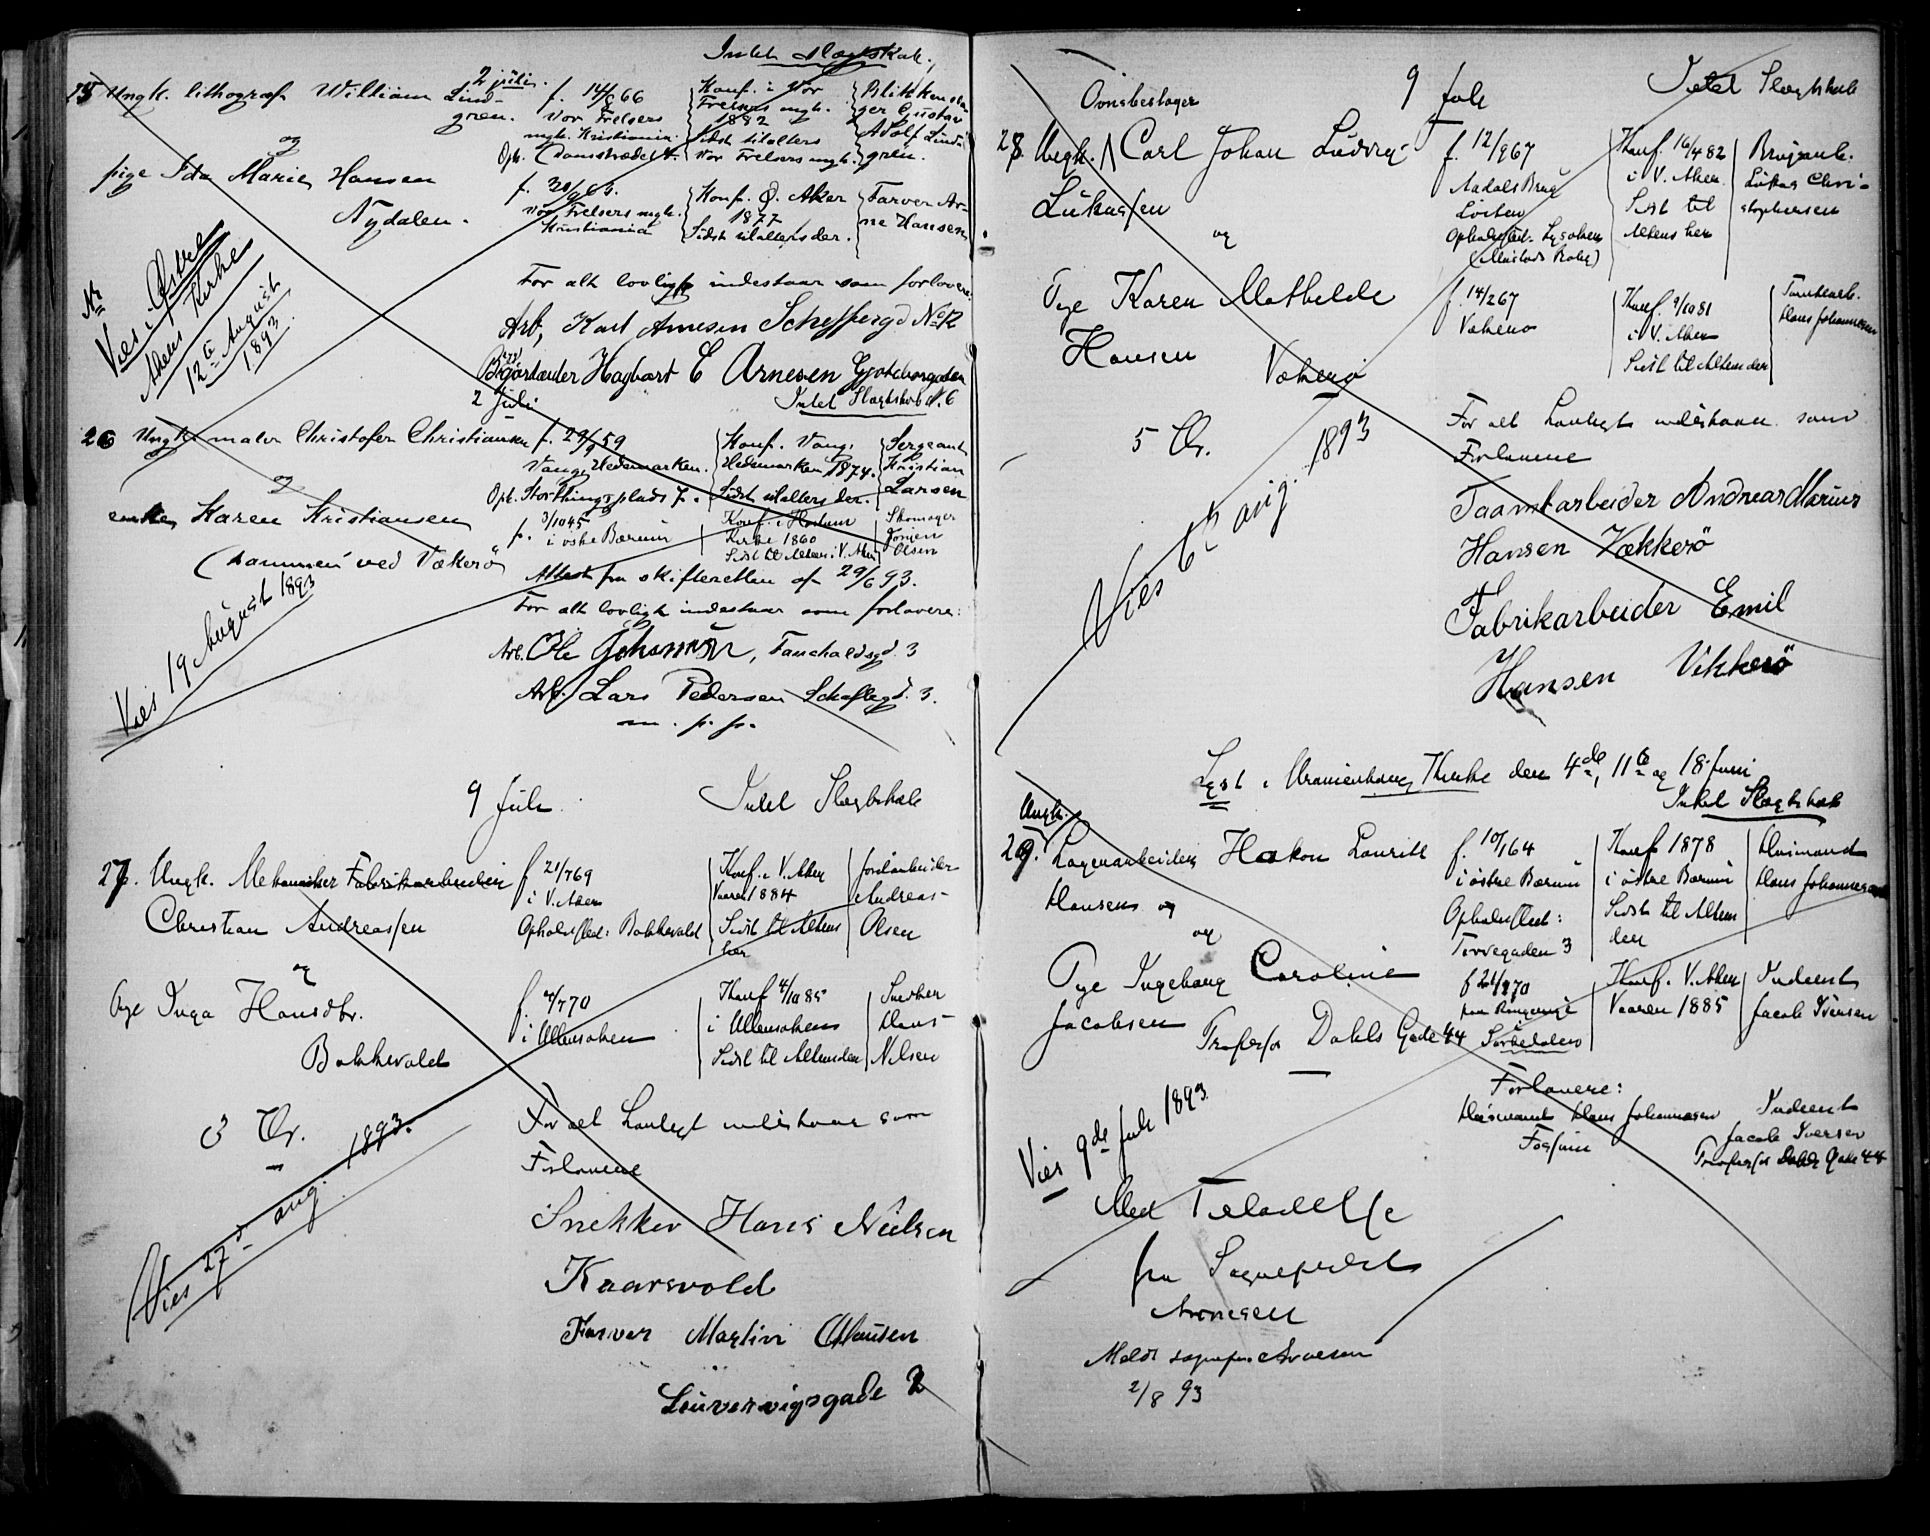 2 juli. Intet Slægtskab.
25 Ungk. lithograf William Lindgren.
f. 14/8 66
Vor Frelsers
mgh. Kristiania.
Oph. Damstrædet 4.
Konf. i Vor
Frelsers mgh.
1882
Sidst til alters
Vor Frelsers mgh.
Blikkenslager Gustav
Adolf Lindgren.
og
pige Ida Marie Hansen
Nydalen.
Vor Frelsers mgh.
Kristiania
Konf. Ø. Aker
1877
Sidst til alters der.
Farver Arne Hansen
Viet i Østre
Akers Kirke
12te August
1893
For alt lovligt indestaar som forlovere:
Arb. Karl Arnesen Scheffergd No 12
Hagbart E Arnesen Gjøteborgaden
N. 6
2 Juli
Intet Slægtskab
26 Ungk. maler Christofer Christiansen
f. 29/9 59
Vang, Hedemarken.
Oph. Storthingsplads 7.
Konf. Vang,
Hedemarken 1874.
Sidst til alters der.
Sergeant
Kristian
Larsen
og
enke Karen Kristiansen
f. 3/10 45
i østre Bærum
Konf. i Haslum
Kirke 1860
Sidst til Alters i V. Aker
Skomager
Olsen
ved Vækerö
Attest fra skifteretten af 29/6 93.
For alt lovligt indestaar som forlovere:
Viet 19 August 1893
Arb. Ole Johansen, 3
Arb. Lars Pedersen 3.
m. p. p.
9 Juli Intet Slægtskab
27. Ungk. Mekaniker Fabrikarbeider
Christian Andreassen
f 21/7 69
i V. Aker
Opholdssted: Bakkevold
Konf. i V. Aker
Vaaren 1884
Sidst til Alters
her
Jordarbeider
Andreas
Olsen
og
Pige Inga Hansdtr.
Bakkevold
f. 4/7 70
i Ullensaken
Konf 4/10 85
i Ullensaken
Sidst til Alters der
Snedker
Hans
Nilsen
3 Kr.
For alt Lovligt indestaar som
Forlovere
Viet 27de aug. 1893.
Snekker Hans Nielsen
Kaarsvold
Farver Martin Olausen
2
Ovnsbeslager
9 Juli
Intet Slægtskab
28. Ungk. Carl Johan Ludvig
Lukassen
f. 12/9 67
Aadals Brug
Løiten
Opholdssted: Lysaker
Konf. 16/4 82
i V. Aker
Sidst til
Alters her
Lukas Christophersen
og
Pige Karen Mathilde
Hansen
Vækerø
f. 14/2 67
Vækerø
Konf. 9/10 81
i V. Aker
Sidst til Alters der
Tomtearb.
Hans Johannesen
5 Kr.
For alt Lovligt indestaar som
Forlovere
Viet 6te aug. 1893
Taamtarbeider Andreas Marius
Hansen Vækkerö
Fabrikarbeider Emil
Hansen Vekkerö
Lyst i Uranienborg Kirke den 4de, 11te og 18 Juni
Intet Slægtskab
Ungk.
29. Lagerarbeider Hakon Lauritz
Hansen
f. 10/1 64
i østre Bærum
Opholdssted:
Torvegaden 3
Konf 1878
i østre Bærum
Sidst til Alters
der
Husmand
Hans Johannesen
og
Pige Ingeborg Caroline
Jacobsen
Professor Dahls Gade 44
paa Ringerige
Konf. V. Aker
Vaaren 1885
Inderst
Jacob Iversen
Forlovere:
Husmand Hans Johannesen
Fossum
Inderst
Jacob Iversen
Professor Dahls Gade 44
Viet 9de Juli 1893
Med Tilladelse
fra Sognepræst
Arnesen
Meldt sognepr. Arnesen
2/8 93